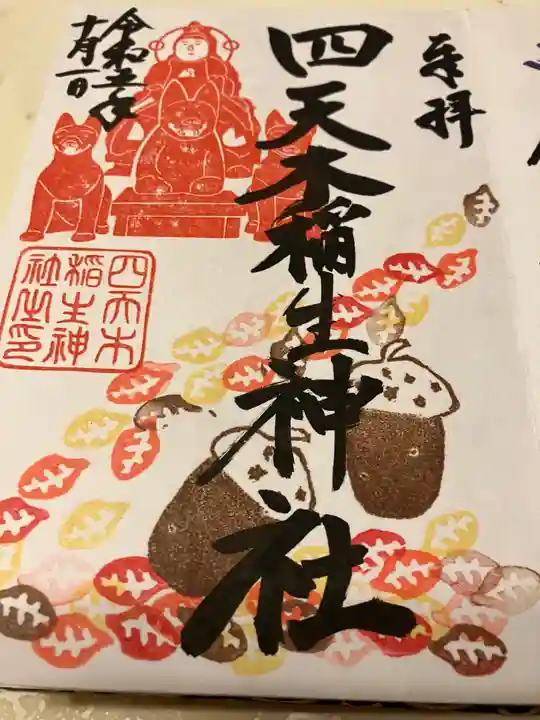 奉拝
四天木稲生神社
令和五年
十月一日
四天木
稲生神
社之印